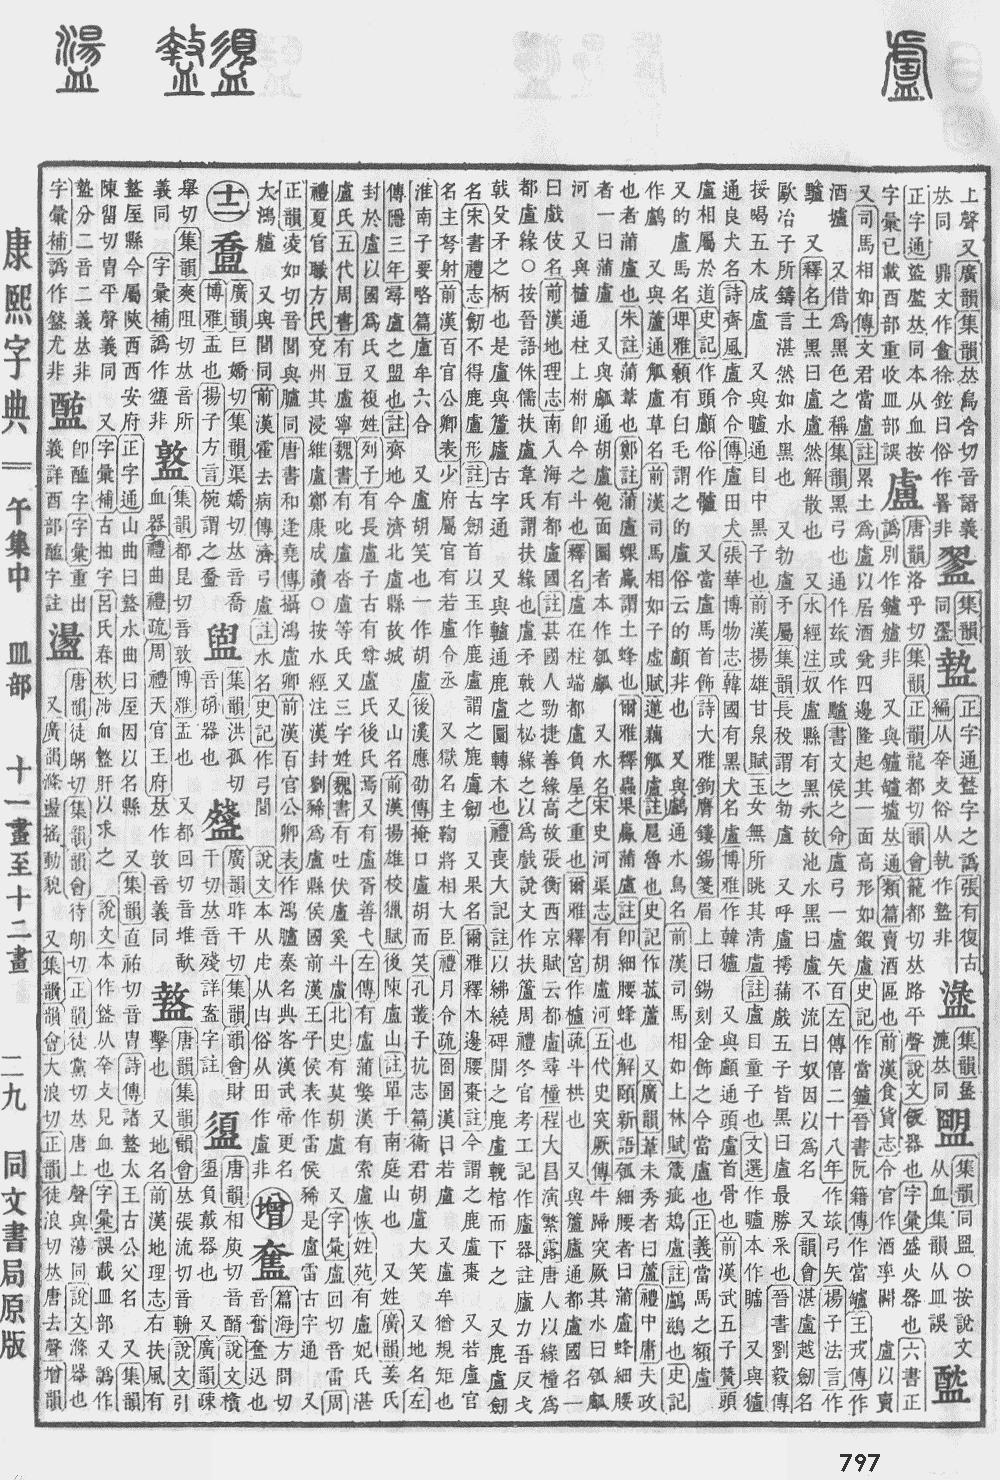 盧
須
盩
盪
上聲又廣韻集韻𠀤烏含切音諳義
𠀤同　鼎文作盦徐鉉曰俗作罯非
集韻
同盝
正字通盩字之譌張有復古
編从幸攴俗从執作盩非
集韻盝
漉𠀤同
盟
集韻同盟○按說文
从血集韻从皿誤
正字通䀉盬𠀤同本从血按
字彙已載酉部重收皿部誤
盧
唐韻洛乎切集韻正韻龍都切韻會籠都切𠀤路平聲說文飯器也字彙盛火器也六書正
譌別作鑪爐非　又與鑪壚𠀤通類篇賣酒區也前漢食貨志令官作酒率開盧以賣
又司馬相如傳文君當盧註累土爲盧以居酒瓮四邊隆起其一面高形如鍜盧史記作當鑪晉書阮籍傳作當壚王戎傳作
酒壚　又借爲黑色之稱集韻黑弓也通作玈或作驢書文侯之命盧弓一盧矢百左傳僖二十八年作玈弓矢揚子法言作
驢　又釋名土黑曰盧盧然解散也　又水經注奴盧縣有黑水故池水黑曰盧不流曰奴因以爲名　又韻會湛盧越劒名
歐冶子所鑄言湛然如水黑也　又勃盧矛屬集韻長稅謂之勃盧　又呼盧摴蒲戲五子皆黑曰盧最勝采也晉書劉毅傳
按喝五木成盧　又與矑通目中黑子也前漢揚雄甘泉賦玉女無所眺其淸盧註盧目童子也文選作矑本作𥃀　又與獹
通良犬名詩齊風盧令令傳盧田犬張華博物志韓國有黑犬名盧博雅作韓獹　又與顱通頭盧首骨也前漢武五子贊頭
盧相屬於道史記作頭顱俗作髗　又當盧馬首飾詩大雅鉤膺鏤錫箋眉上曰錫刻金飾之今當盧也正義當馬之額盧
又的盧馬名埤雅顙有白毛謂之的盧俗云的顱非也　又與鸕通水鳥名前漢司馬相如上林賦箴疵鵁盧註鸕鷀也史記
作鸕　又與蘆通觚盧草名前漢司馬相如子虛賦蓮藕觚盧註扈魯也史記作菰蘆　又廣韻葦未秀者曰蘆禮中庸夫政
也者蒲盧也朱註蒲葦也鄭註蒲盧蜾蠃謂土蜂也爾雅釋蟲果蠃蒲盧註卽細腰蜂也解頤新語瓠細腰者曰蒲盧蜂細腰
者一曰蒲盧　又與瓠通胡盧匏面圓者本作瓠𤬛　又水名宋史河渠志有胡盧河五代史突厥傳牛歸突厥其水曰瓠𤬛
河　又與櫨通柱上柎卽今之斗也釋名盧在柱端都盧負屋之重也爾雅釋宮作櫨疏斗栱也　又與籚通都盧國名一
曰戲伎名前漢地理志南入海有都盧國註其國人勁捷善緣高故張衡西京賦云都盧尋橦程大昌演繁露唐人以緣橦爲
都盧緣○按晉語侏儒扶盧韋氏謂扶緣也盧矛戟之柲緣之以爲戲說文作扶籚周禮冬官考工記作廬器註廬力吾反戈
戟殳矛之柄也是盧與籚廬古字通　又與轤通鹿盧圜轉木也禮喪大記註以紼繞碑閒之鹿盧輓棺而下之　又鹿盧劒
名宋書禮志劒不得鹿盧形註古劒首以玉作鹿盧謂之鹿盧劒　又果名爾雅釋木邊腰棗註今謂之鹿盧棗　又若盧官
名主弩射前漢百官公卿表少府屬官有若盧令丞　又獄名主鞠將相大臣禮月令疏囹圄漢曰若盧　又盧牟猶規矩也
淮南子要略篇盧牟六合　又盧胡笑也一作胡盧後漢應劭傳掩口盧胡而笑孔叢子抗志篇衞君胡盧大笑　又地名左
傳隱三年尋盧之盟也註齊地今濟北盧縣故城　又山名前漢揚雄校獵賦後陳盧山註單于南庭山也　又姓廣韻姜氏
封於盧以國爲氏又複姓列子有長盧子古有尊盧氏後氏焉又有盧胥善弋左傳有盧蒲嫳漢有索盧恢姓苑有盧妃氏湛
盧氏五代周書有豆盧寧魏書有叱盧沓盧等氏又三字姓魏書有吐伏盧奚斗盧北史有莫胡盧　又字彙盧回切音雷周
禮夏官職方氏兗州其浸維盧鄭康成讀○按水經注漢封劉豨爲盧縣侯國前漢王子侯表作雷侯豨是盧雷古字通　又
正韻凌如切音閭與臚同唐書和逢堯傳攝鴻盧卿前漢百官公卿表作鴻臚秦名典客漢武帝更名
大鴻臚　又與閭同前漢霍去病傳濟弓盧註水名史記作弓閭　說文本从虍从甶俗从田作盧非
增
篇海方問切
音奮奮迅也
十二
廣韻巨嬌切集韻渠嬌切𠀤音喬
博雅盂也揚子方言椀謂之𥂩
集韻洪孤切
音胡器也
廣韻昨干切集韻韻會財
干切𠀤音殘詳盞字註
唐韻相庾切音醑說文檟
盨負戴器也　又廣韻疎
舉切集韻爽阻切𠀤音所
義同　字彙補譌作盨非
集韻都昆切音敦博雅盂也　又都回切音堆㪟
血器禮曲禮疏周禮天官玉府𠀤作敦音義同
盩
唐韻集韻韻會𠀤張流切音輈說文引
擊也　又地名前漢地理志右扶風有
盩厔縣今屬陝西西安府正字通山曲曰盩水曲曰厔因以名縣　又集韻直祐切音胄詩傳諸盩太王古公父名　又集韻
陳留切胄平聲義同　又字彙補古抽字呂氏春秋盩肝以求之　說文本作盩从幸攴見血也字彙誤載皿部又譌作
盩分二音二義𠀤非
字彙補譌作盭尤非
卽醢字字彙重出
義詳酉部醢字註
盪
唐韻徒朗切集韻韻會待朗切正韻徒黨切𠀤唐上聲與蕩同說文滌器也
又廣韻滌盪搖動貌　又集韻韻會大浪切正韻徒浪切𠀤唐去聲增韻
康熙字典
午集中　皿部　十一畫至十二畫
二九　同文書局原版
797